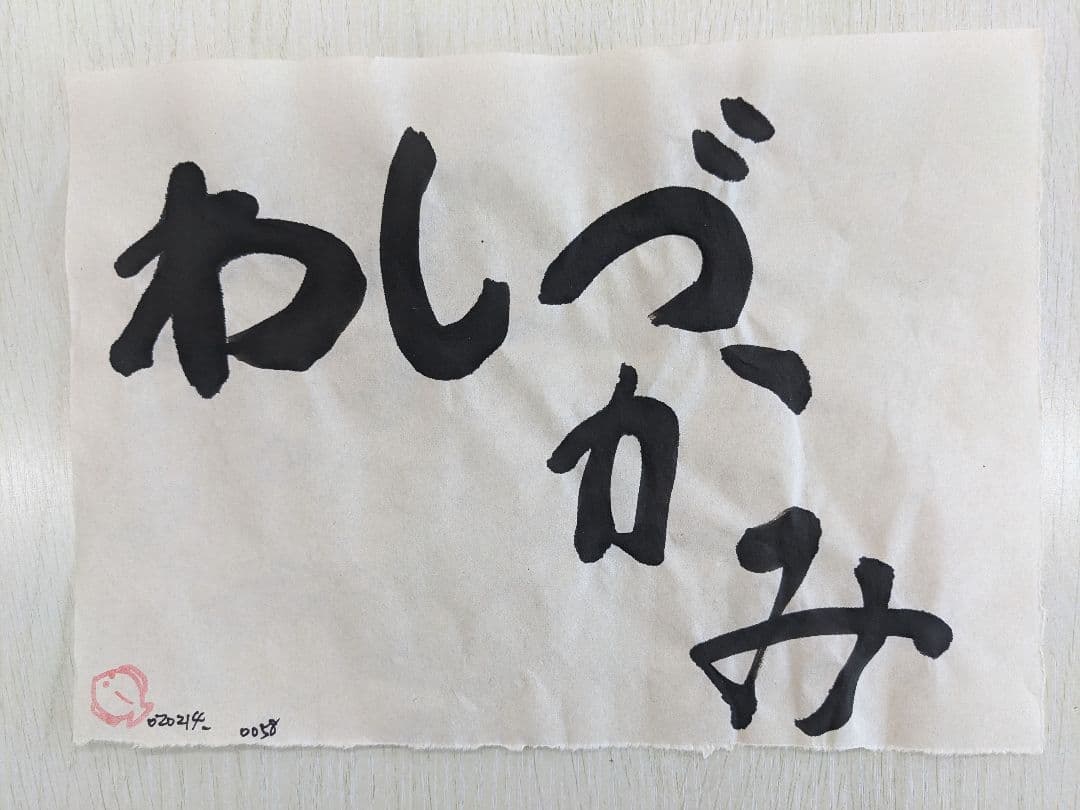 わしづかみ
020214_ 0058